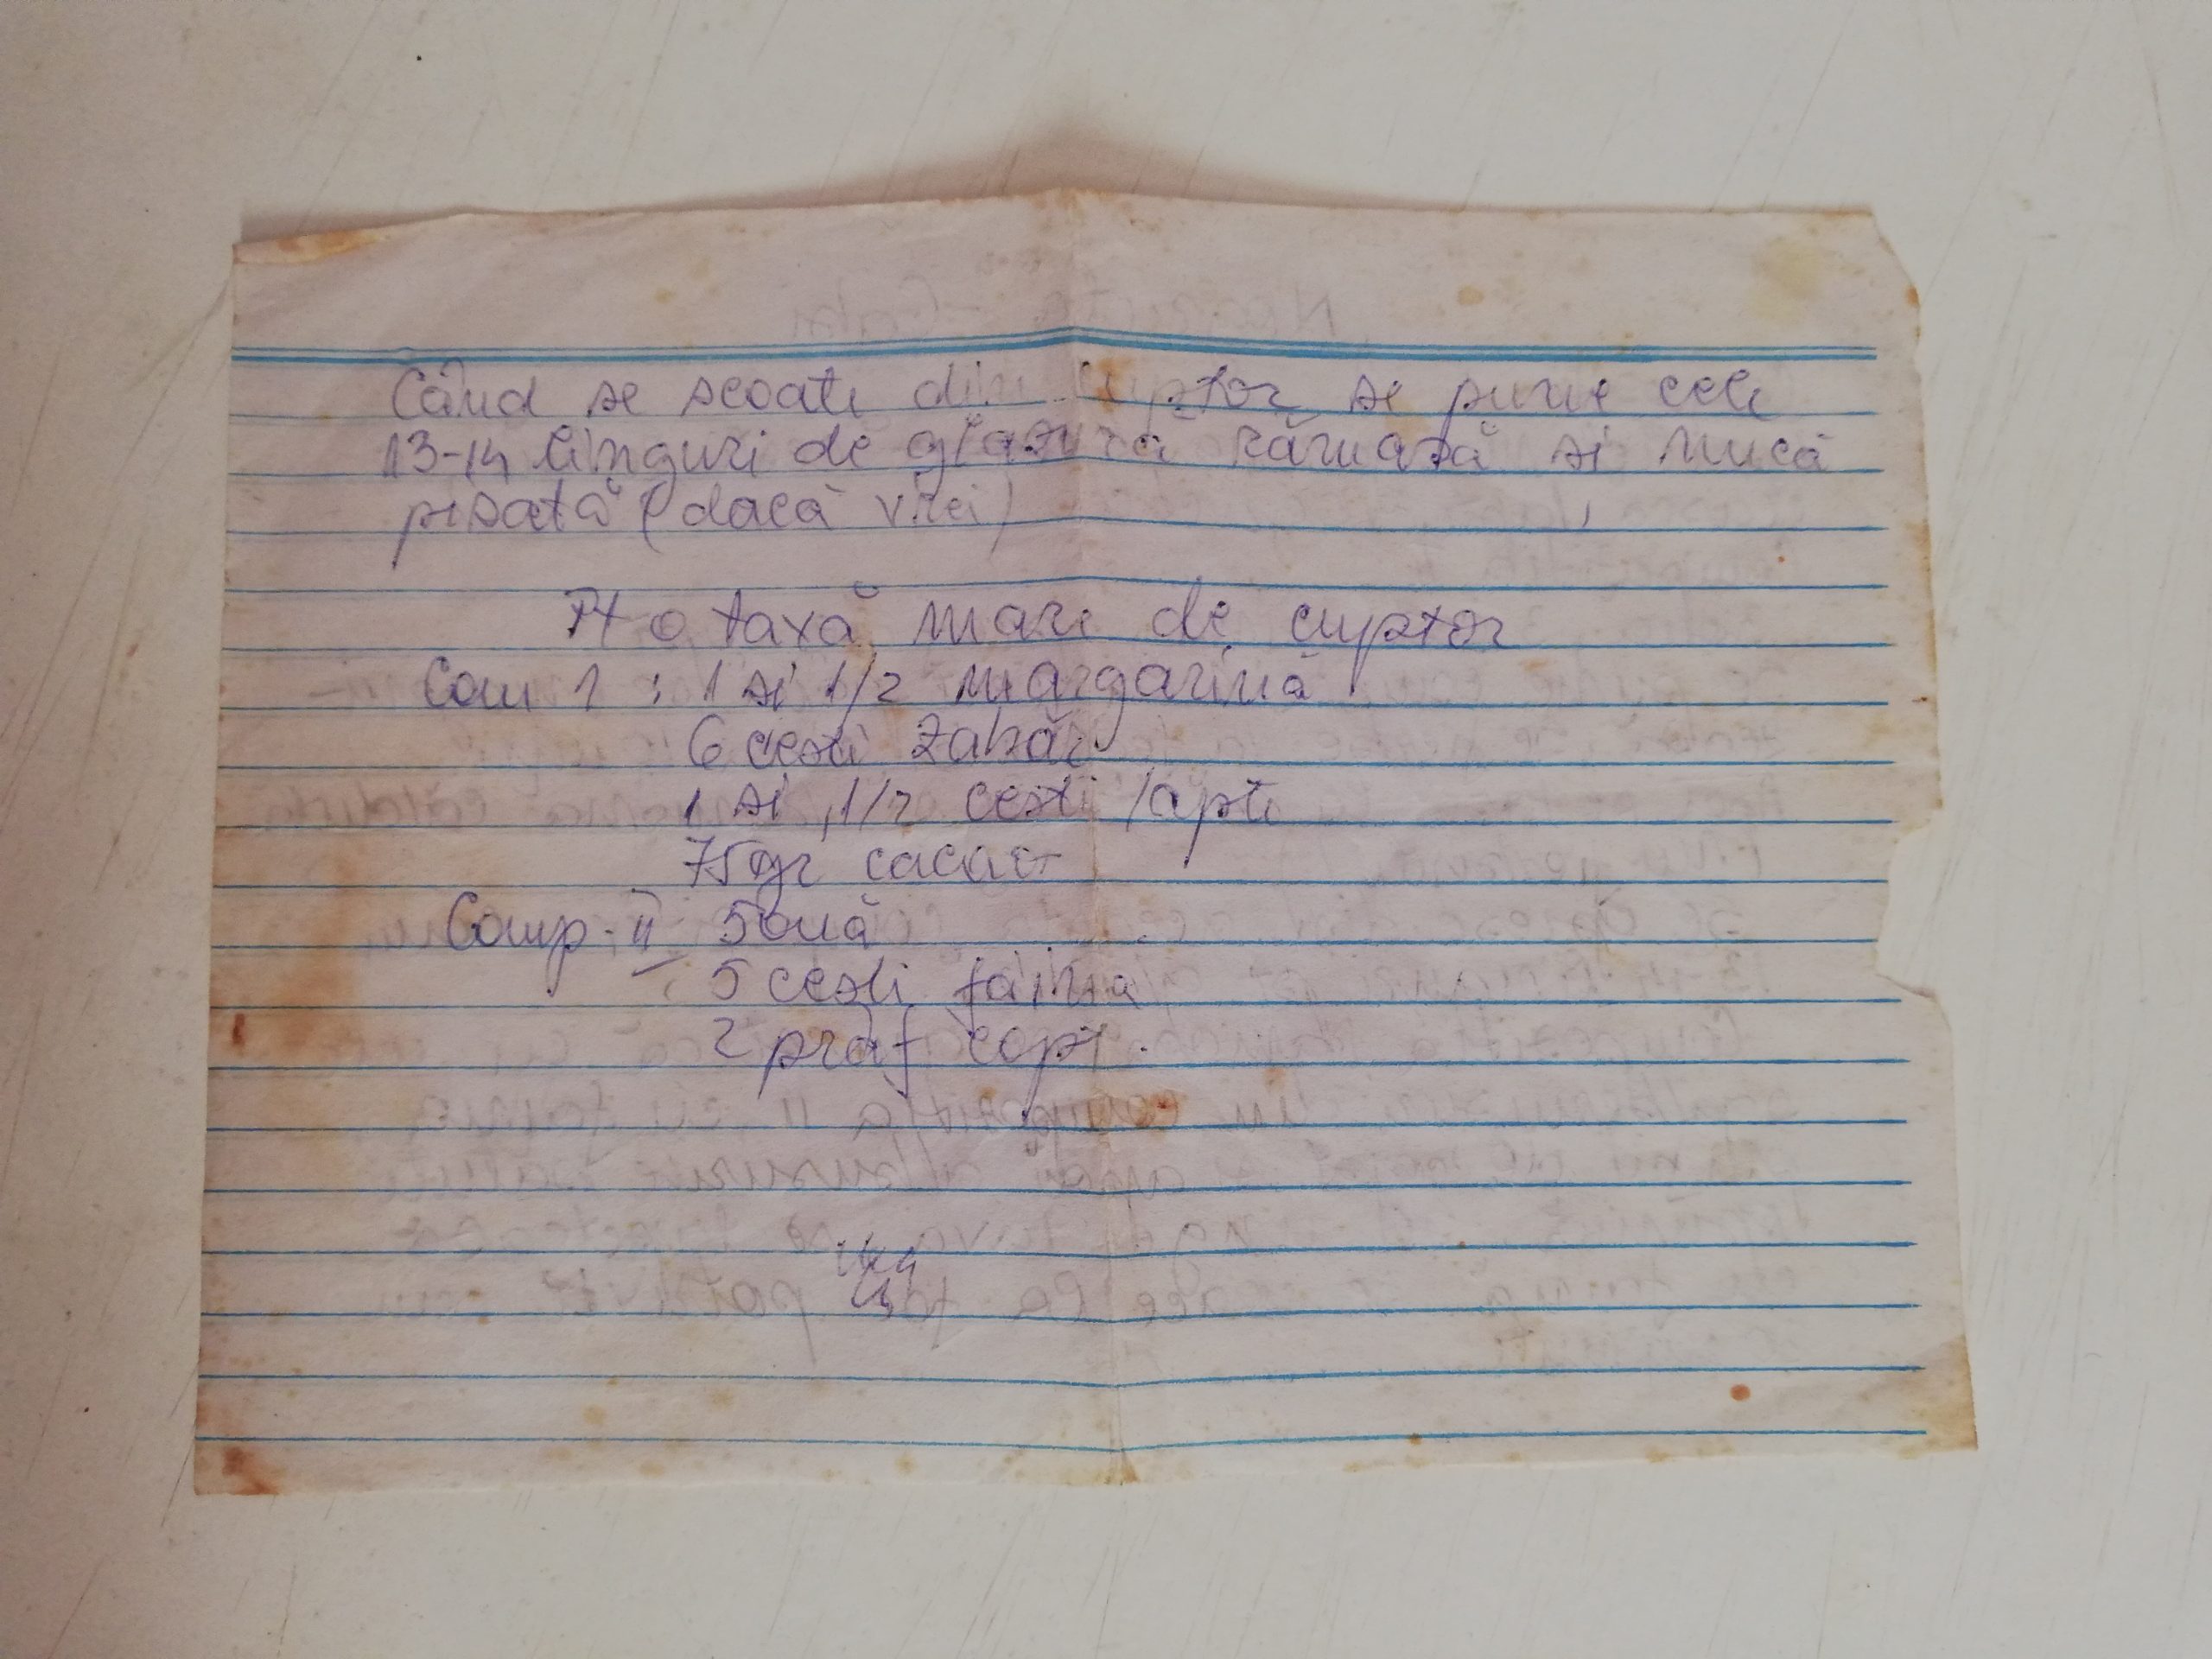 Când se scoate din cuptor se pune cele
13-14 linguri de glasură rămasă si nucă
pisată (dacă vrei)
Pt o taxă mare de cuptor
Com 1 : 1 si 1/2 margarină
6 cesti zahăr
1 si 1/2 cesti lapte
75gr cacao
Comp. II 5 ouă
5 cesti faina
2 praf copt.